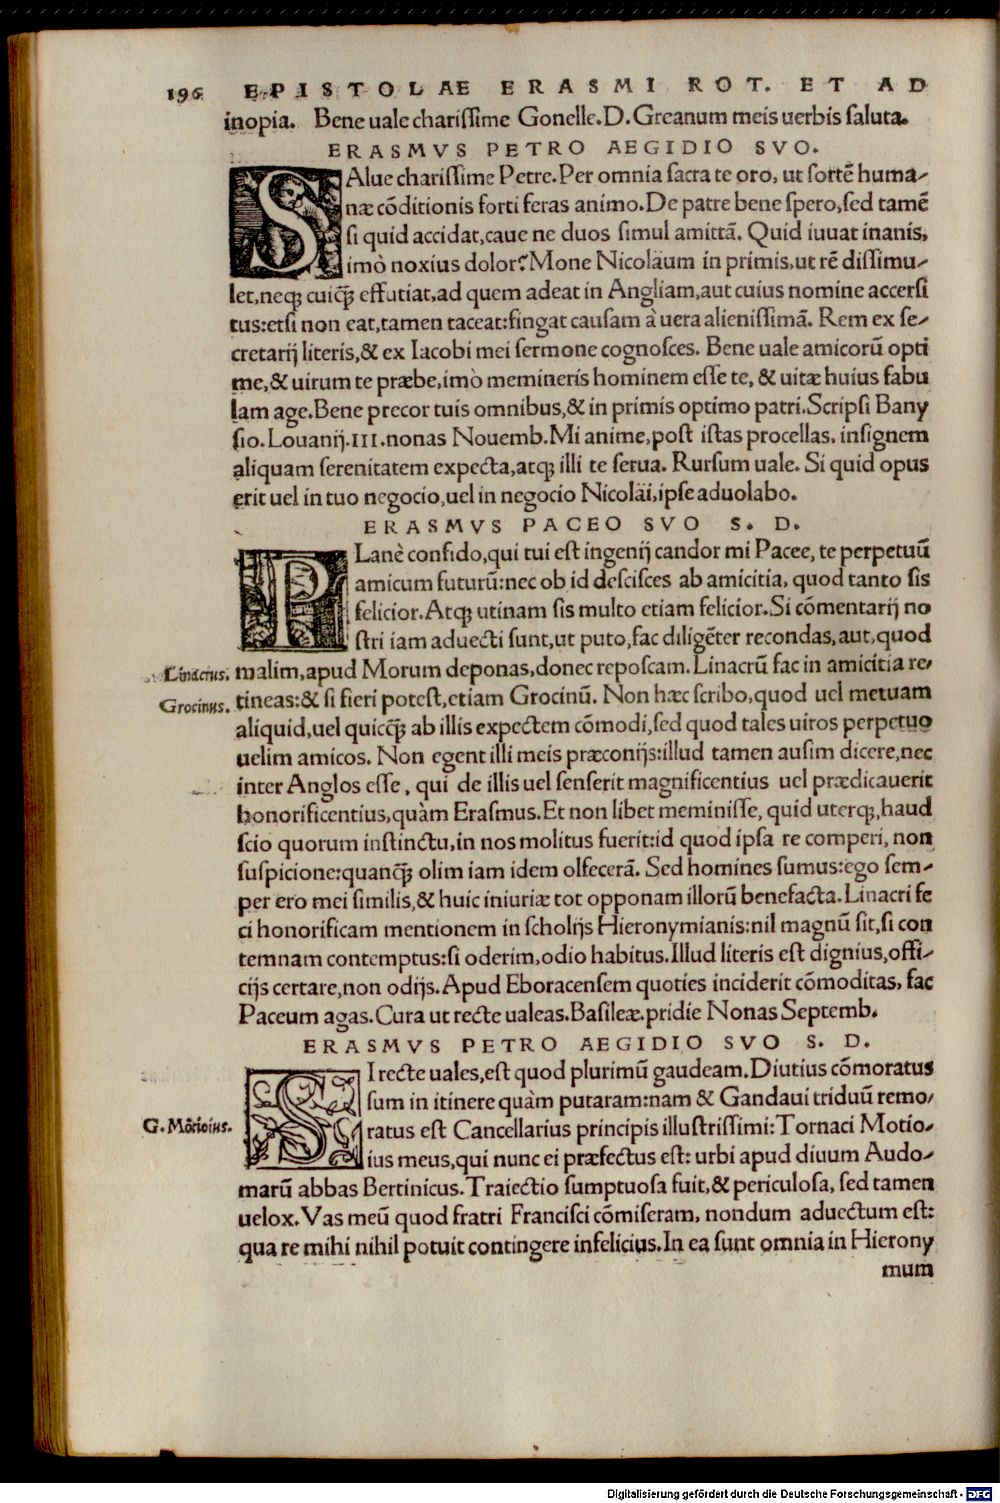 196 EPISTOLAE ERASMI ROT. ET AD
inopia. Bene uale chariſſime Gonelle.D.Greanum meis uerbis ſaluta.
ERASMVS PETRO AEGIDIO SVO.
SAlue chariſſime Petre.Per omnia ſacra te oro, ut ſortē huma-
næ cōditionis forti feras animo.De patre bene ſpero,ſed tamē
ſi quid accidat,caue ne duos ſimul amittā. Quid iuuat inanis,
imò noxius dolor? Mone Nicoläum in primis,ut rē diſſimu-
let,neqꝫ cuiqꝫ̄ effutiat,ad quem adeat in Angliam,aut cuius nomine accerſi
tus:etſi non eat,tamen taceat:fingat cauſam à uera alieniſſimā. Rem ex ſe-
cretarij literis,& ex Iacobi mei ſermone cognoſces. Bene uale amicorū opti
me,& uirum te præbe,imò memineris hominem eſſe te, & uitæ huius fabu
lam age.Bene precor tuis omnibus,& in primis optimo patri.Scripſi Bany
ſio.Louanij.III.nonas Nouemb.Mi anime,poſt iſtas procellas, inſignem
aliquam ſerenitatem expecta,atqꝫ illi te ſerua. Rurſum uale. Si quid opus
erit uel in tuo negocio,uel in negocio Nicoläi,ipſe aduolabo.
ERASMVS PACEO SVO S. D.
PLanè confido,qui tui eſt ingenij candor mi Pacee, te perpetuū
amicum futurū:nec ob id deſciſces ab amicitia, quod tanto ſis
felicior.Atqꝫ utinam ſis multo etiam felicior.Si cōmentarij no
ſtri iam aduecti ſunt,ut puto,fac diligēter recondas,aut,quod
Linacrus. malim,apud Morum deponas,donec repoſcam.Linacrū fac in amicitia re-
Grocinus. tineas:& ſi fieri poteſt,etiam Grocinū. Non hæc ſcribo,quod uel metuam
aliquid,uel quicqꝫ̄ ab illis expectem cōmodi,ſed quod tales uiros perpetuo
uelim amicos. Non egent illi meis præconijs:illud tamen auſim dicere,nec
inter Anglos eſſe, qui de illis uel ſenſerit magnificentius uel prædicauerit
honorificentius,quàm Eraſmus.Et non libet meminiſſe, quid uterqꝫ,haud
ſcio quorum inſtinctu,in nos molitus fuerit:id quod ipſa re comperi, non
ſuſpicione:quanqꝫ̄ olim iam idem olfecerā. Sed homines ſumus:ego ſem-
per ero mei ſimilis,& huic iniuriæ tot opponam illorū benefacta.Linacri fe
ci honorificam mentionem in ſcholijs Hieronymianis:nil magnū ſit,ſi con
temnam contemptus:ſi oderim,odio habitus.Illud literis eſt dignius,offi-
cijs certare,non odijs.Apud Eboracenſem quoties inciderit cōmoditas, fac
Paceum agas.Cura ut recte ualeas.Baſileæ.pridie Nonas Septemb.
ERASMVS PETRO AEGIDIO SVO S. D.
SI recte uales,eſt quod plurimū gaudeam.Diutius cōmoratus
ſum in itinere quàm putaram:nam & Gandaui triduū remo-
G. Mōtioius. ratus eſt Cancellarius principis illuſtriſſimi:Tornaci Motio-
ius meus,qui nunc ei præfectus eſt: urbi apud diuum Audo-
marū abbas Bertinicus.Traiectio ſumptuoſa fuit,& periculoſa, ſed tamen
uelox.Vas meū quod fratri Franciſci cōmiſeram, nondum aduectum eſt:
qua re mihi nihil potuit contingere infelicius.In ea ſunt omnia in Hierony
mum
Digitalisierung gefördert durch die Deutsche Forschungsgemeinschaft - DFG